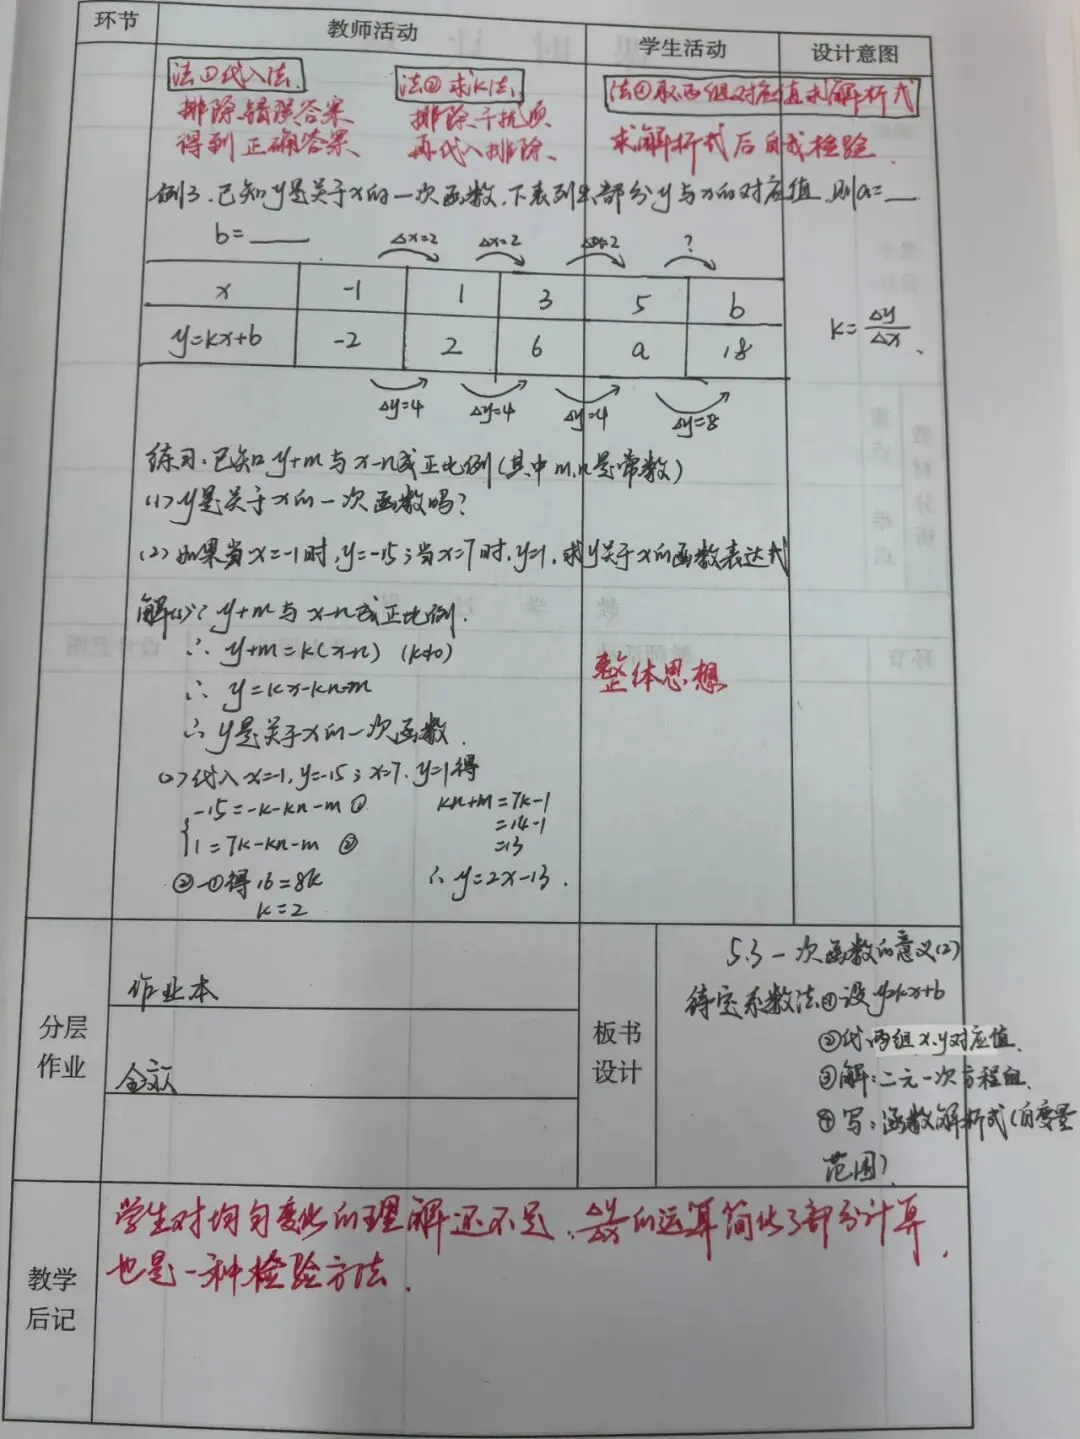 环节 教师活动 学生活动 设计意图
法①代入法. 法② 求k法. 法④取两组对应值求解析式
排除错误答案 排除干扰项 求解析式后自我检验.
得到正确答案、 再代入排除、
例3、已知y是关于x的一次函数,下表列出部分y与x的对应值,则a=__
b=____
Δx=2 Δx=2 Δx=2 ?
x -1 1 3 5 b
y=kx+b -2 2 6 a 18
Δy=4 Δy=4 Δy=4 Δy=8
k=Δy/Δx.
练习.已知y+m与x-n成正比例(其中m,n是常数)
(1)y是关于x的一次函数吗?
(2)如果当x=-1时,y=-15;当x=7时,y=1,求y关于x的函数表达式
解(1)∵y+m与x-n成正比例.
∴y+m=k(x-n) (k≠0)
∴y=kx-kn-m
∴y是关于x的一次函数.
整体思想
(2)代入x=-1,y=-15;x=7,y=1得
-15=-k-kn-m ① kn+m=7k-1
=14-1
1=7k-kn-m ② =13
②-①得16=8k ∴y=2x-13.
k=2
分层
作业
作业本
全效
板书
设计
5.3一次函数的意义(2)
待定系数法①设y=kx+b
②代:两组x,y对应值.
③解:二元一次方程组.
④写:函数解析式(自变量
范围)
教学
后记
学生对均匀变化的理解还不足,Δy/Δx的运算简化了部分计算,
也是一种检验方法.